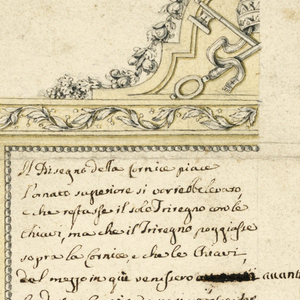 Il Disegno della cornice piace
l'ornato superiore si vorrebbe levare
e che restasse il solo Triregno con le
chiavi, ma che il Triregno poggiasse
sopra la cornice, e che le Chiavi,
dal mezzo in giù venissero avanti